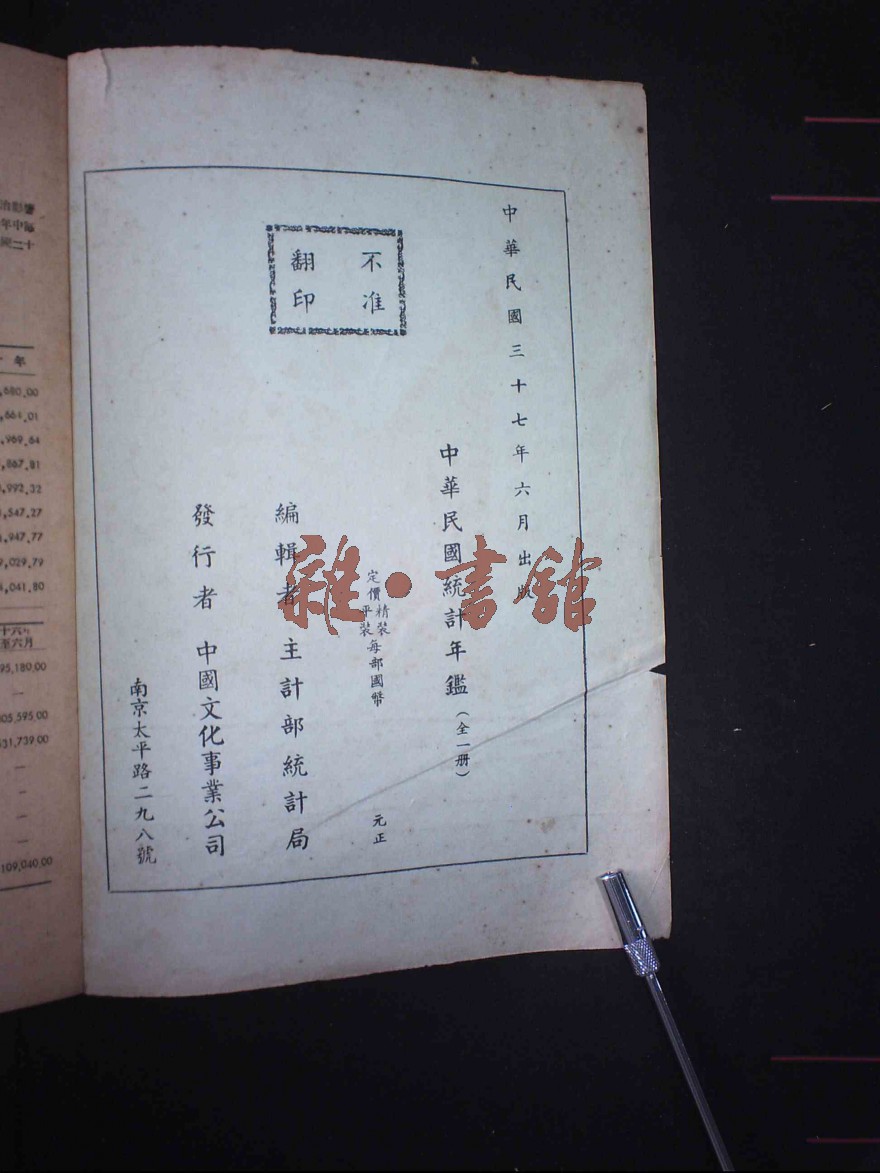 中華民國三十七年六月出版
中華民國統計年鑑（全一册）
定價精裝平裝每部國幣 元正
編輯者 主計部統計局
發行者 中國文化事業公司
南京太平路二九八號
不准
翻印
雜·書館
年
,680.00
,664.01
,969.64
,867.81
,992.32
,547.27
,947.77
,029.79
,041.80
十六年
至六月
95,180.00
—
805,595.00
531,739.00
—
—
—
—
109,040.00